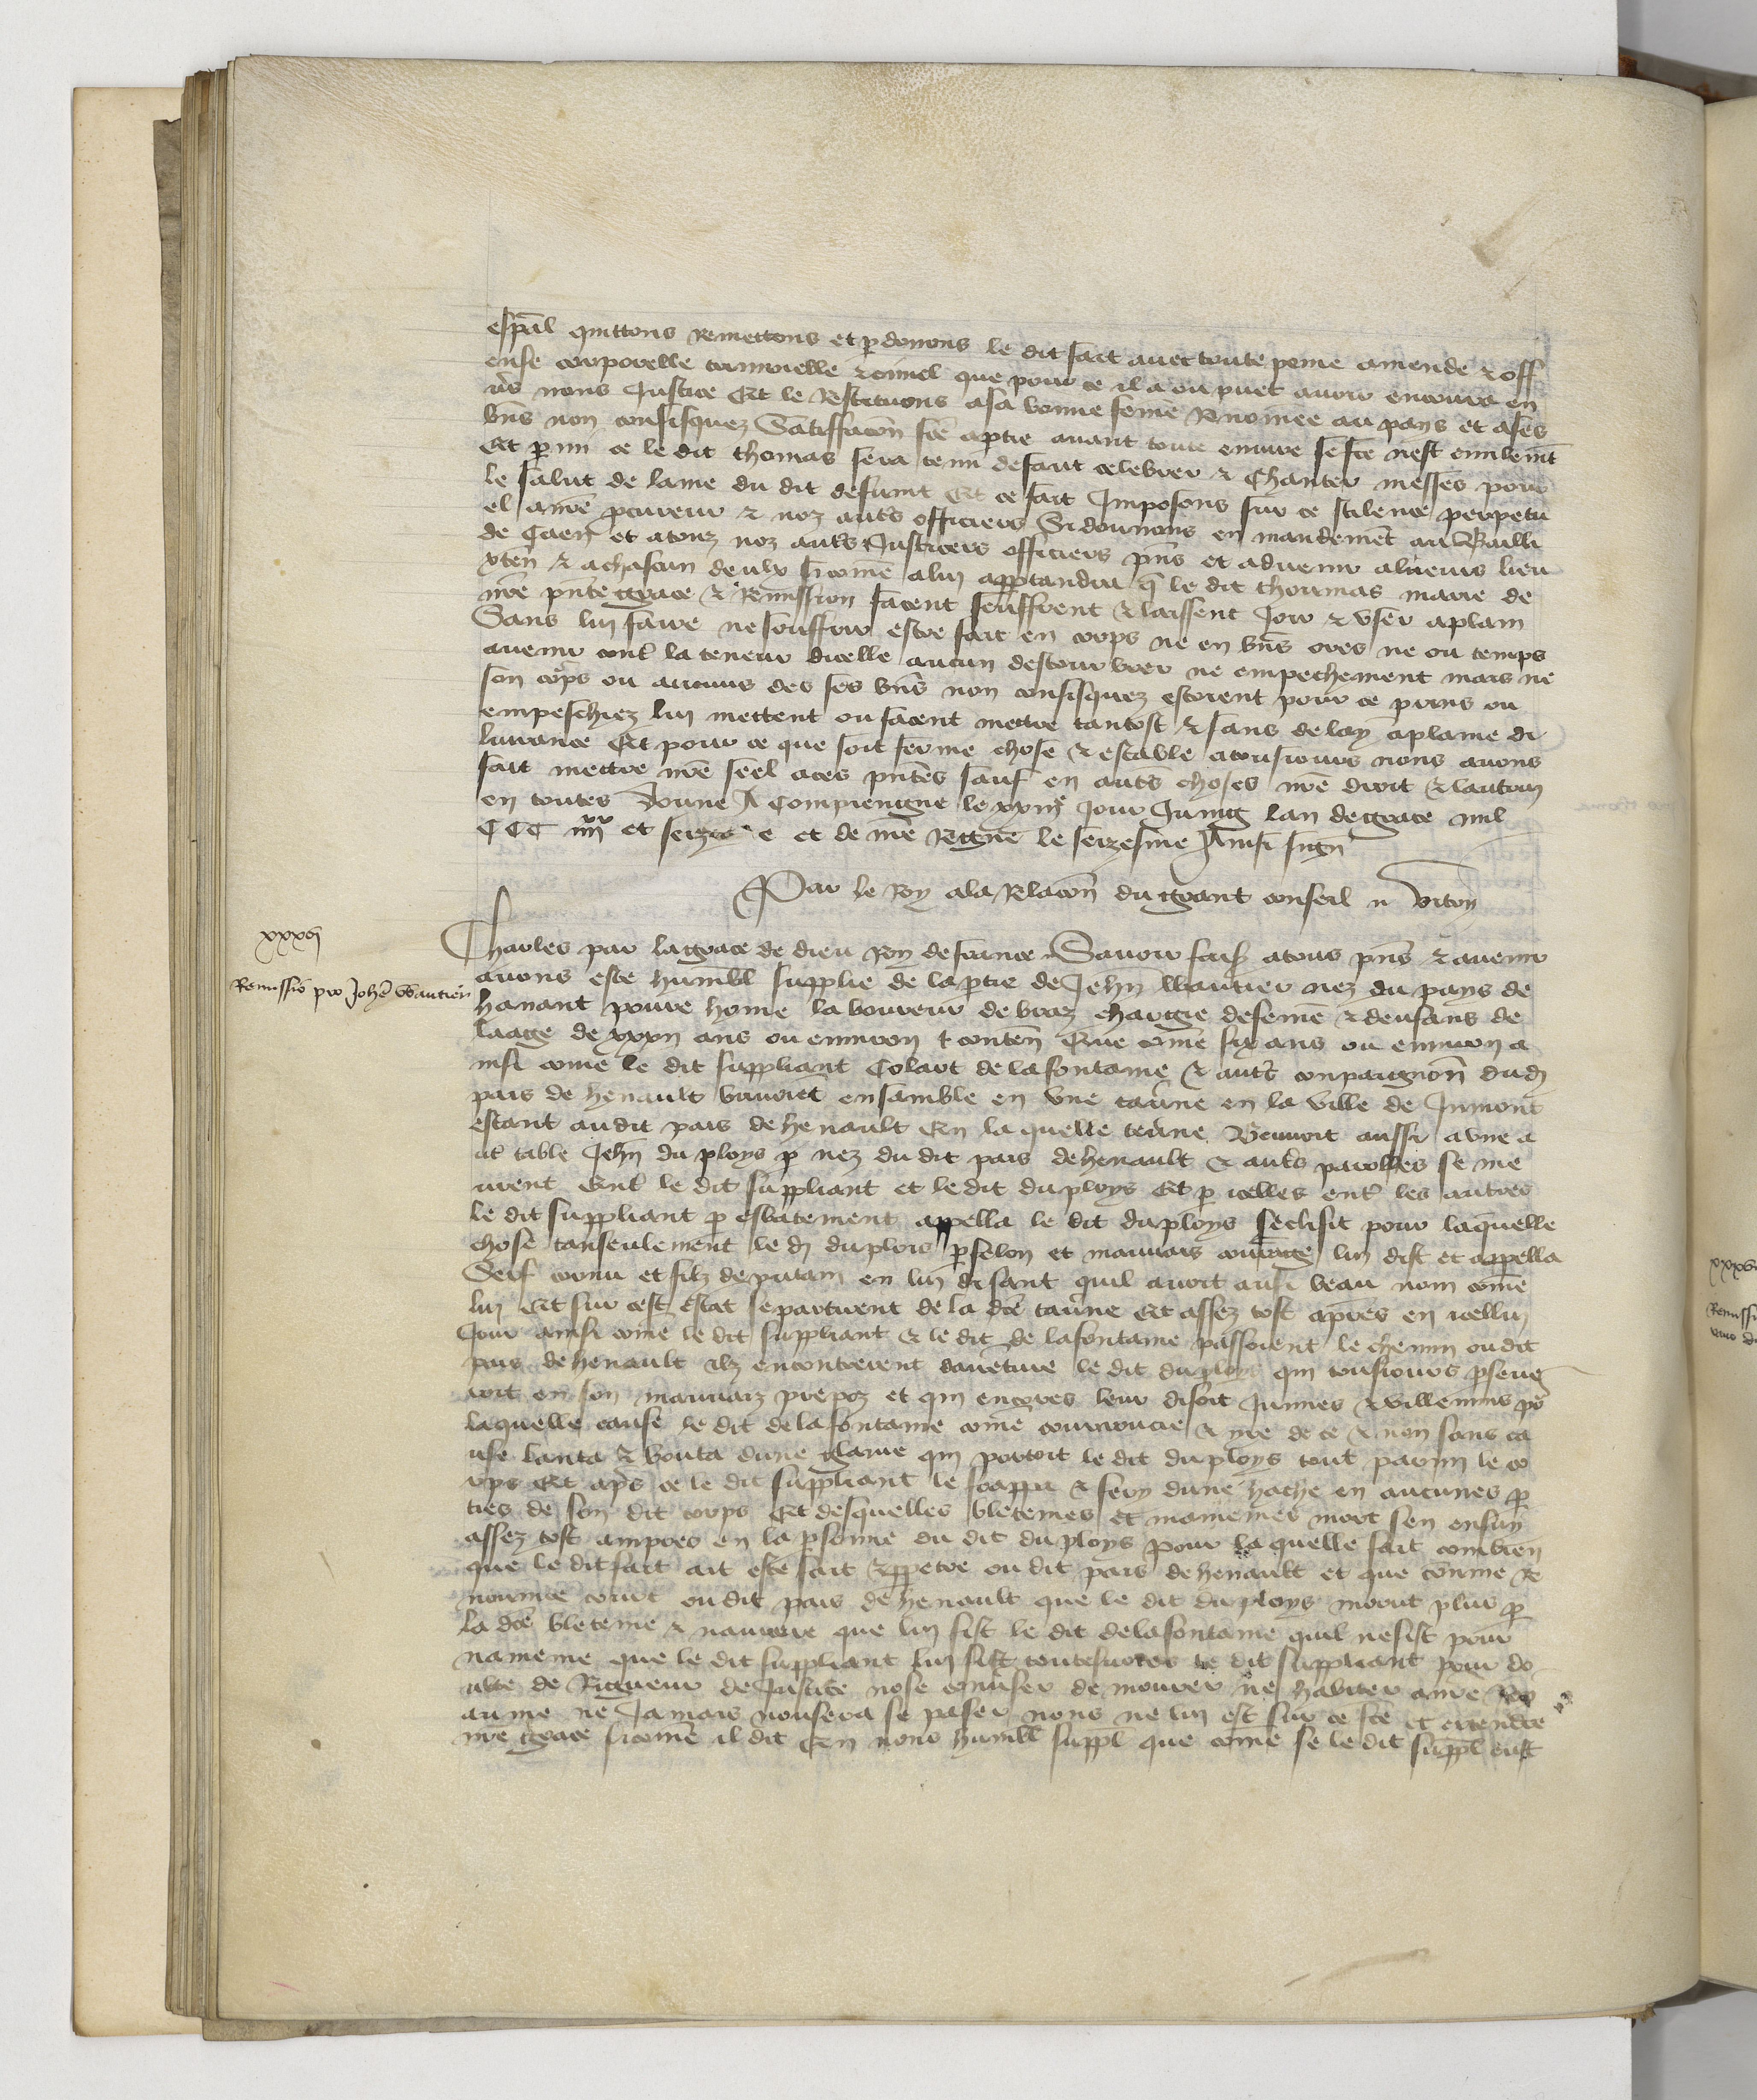 espāl quittons Remettons et pdonnons le dit fait avec toute peine amende & off
ense corporelle criminelle & civiel que pour ce il a ou puet avoir encouru en
vs nous Justice Et le Restituons a sa bonne feme Renomee au pays et a ses
bns non confisquez Satiffacon fce a ptie avant toute euvre se fce nest civilemt
Et pmi ce le dit thomas sera tenu de faire celebrer & Chanter messes pour
le salut de lame du dit defunt Et ce fait Imposons sur ce silence perpetu
el a nre pcureur & noz auts officiers Si donnons en mandemet au Bailli
de Caen et a touz noz auts Justiciers officiers pns et advenir a leurs lieu
xten & a chascun deulx si come a lui apptandra q le dit thoumas marie de
nre pnte grace & Remission facent seuffrent & laissent Joir & user a plain
Sans lui faire ne souffrir estre fait en corps ne en bns ores ne ou temps
avenir cont la teneur dicelle aucun destourbier ne empechement mais ne
son cops ou aucuns des ses bns non confisquez estoient pour ce prins ou
empeschiez lui mettent ou facent mettre tantost & sans delay a plaine di
livrance Et pour ce que soit ferme chose & estable a tousiours nous avons
fait mettre nre seel a ces pntes sauf en auts choses nre droit & lautrui
en toutes Donne A Compiengne le xxiiije Jour Juing lan de grace mil
CCC iiijxx et seize e et de nre Regne le seizesme Ainsi sign
Par le Roy a la Relacon du grant conseil n vitry
xxxvj
Remissio pro Johe Wautier
Charles par la grace de dieu Roy de france Savoir fais a tous pns & avenir
avons este humbl supplie de la ptie de Jehn Wautier nez du pays de
hanaut povre home laboureur de braz chargie de feme & denfans de
laage de xxxij ans ou environ contenn Que come six ans ou environ a
insi come le dit suppliant Colart de la fontaine & auts conpaignon dud
pais de henault buvoiet ensamble en une tavne en la ville de Jumont
estant au dit pais de henault En la quelle tavne Bevoit aussi a une a
ut table Jehn du ploys p nez du dit pais de henault & auts paroles se me
urent ent le dit suppliant et le dit du ploys Et p icelles ent les autres
le dit suppliant p esbatement appella le dit du ploys seclisit pour laquelle
chose tanseulement le d du plois p felon et mauvais courage lui dist et appella
Serf cornu et filz de putain en lui disant quil avoit ausi beau nom come
lui Et sur cest estat se partirent de la dce tavne Et assez tost apres en icellui
Jour ainsi come le dit suppliant & le dit de la fontaine passoient le chemin ou dit
pais de henault ilz encontrerent daveture le dit du ploys qui tousiours pseve
roit en son mauvaiz propoz et qui encores leur disoit Juures & villenies po
laquelle cause le dit de la fontaine come courroucie & ire de ce & non sans ca
use lanca & bouta dune glaive qui portoit le dit du ploys tout parmi le co
rps Et aps ce le dit suppliant le frappa & fery dune hache en aucunes p
ties de son dit corps Et desquelles bleceures et navreures mort sen ensuy
assez tost ampres en la psonne du dit du ploys pour laquelle fait combien
que le dit fait ait este fait & ppetre ou dit pais de henault et que comme re
nommee court ou dit pais de henault que le dit du ploys morut plus p
la dce bleceure & navreure que lui fist le dit de la fontaine quil ne fist pour
navreure que le dit suppliant lui fist toutesvoies le dit suppliant pour do
ubte de Rigueur de Justice nose converser demourer ne habiter a nre Roy
aume ne Jamais nousera se paser nous ne lui est sur ce fce et extendre
nre grace si come il dit En nous humbl suppl que come se le dit suppl eust